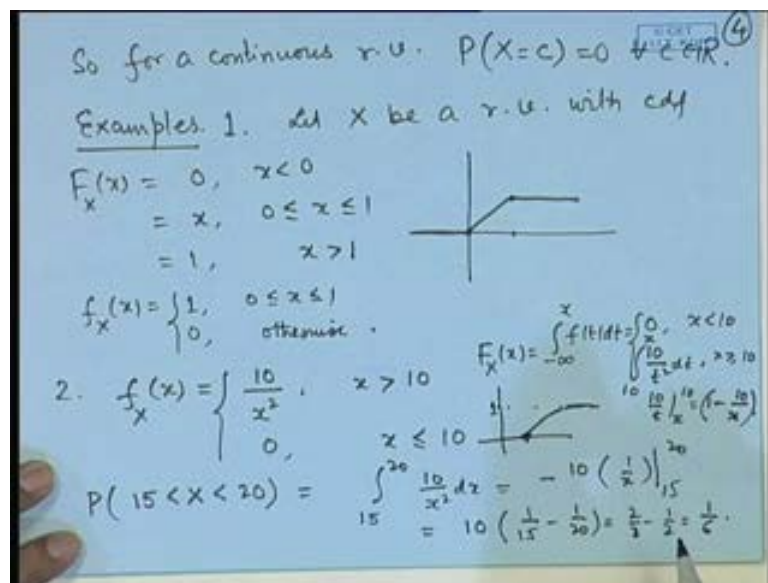 4
So for a continuous r.v. P(X=c) =0 ∀ c∈ℝ.
Examples. 1. Let X be a r.v. with cdf
F_X(x) = 0, x<0
= x, 0 ≤ x ≤ 1
= 1, x>1
f_X(x) = { 1, 0 ≤ x ≤ 1
0, otherwise.
2. f_X(x) = { 10/x², x > 10
0, x ≤ 10
F_X(x) = ∫_{-∞}^{x} f(t)dt = { 0, x<10
∫_{10}^{x} 10/t² dt, x ≥ 10
10/t |_x^{10} = (1 - 10/x)
1
P( 15 < X < 20) = ∫_{15}^{20} 10/x² dx = - 10 (1/x) |_{15}^{20}
= 10 (1/15 - 1/20) = 2/3 - 1/2 = 1/6.